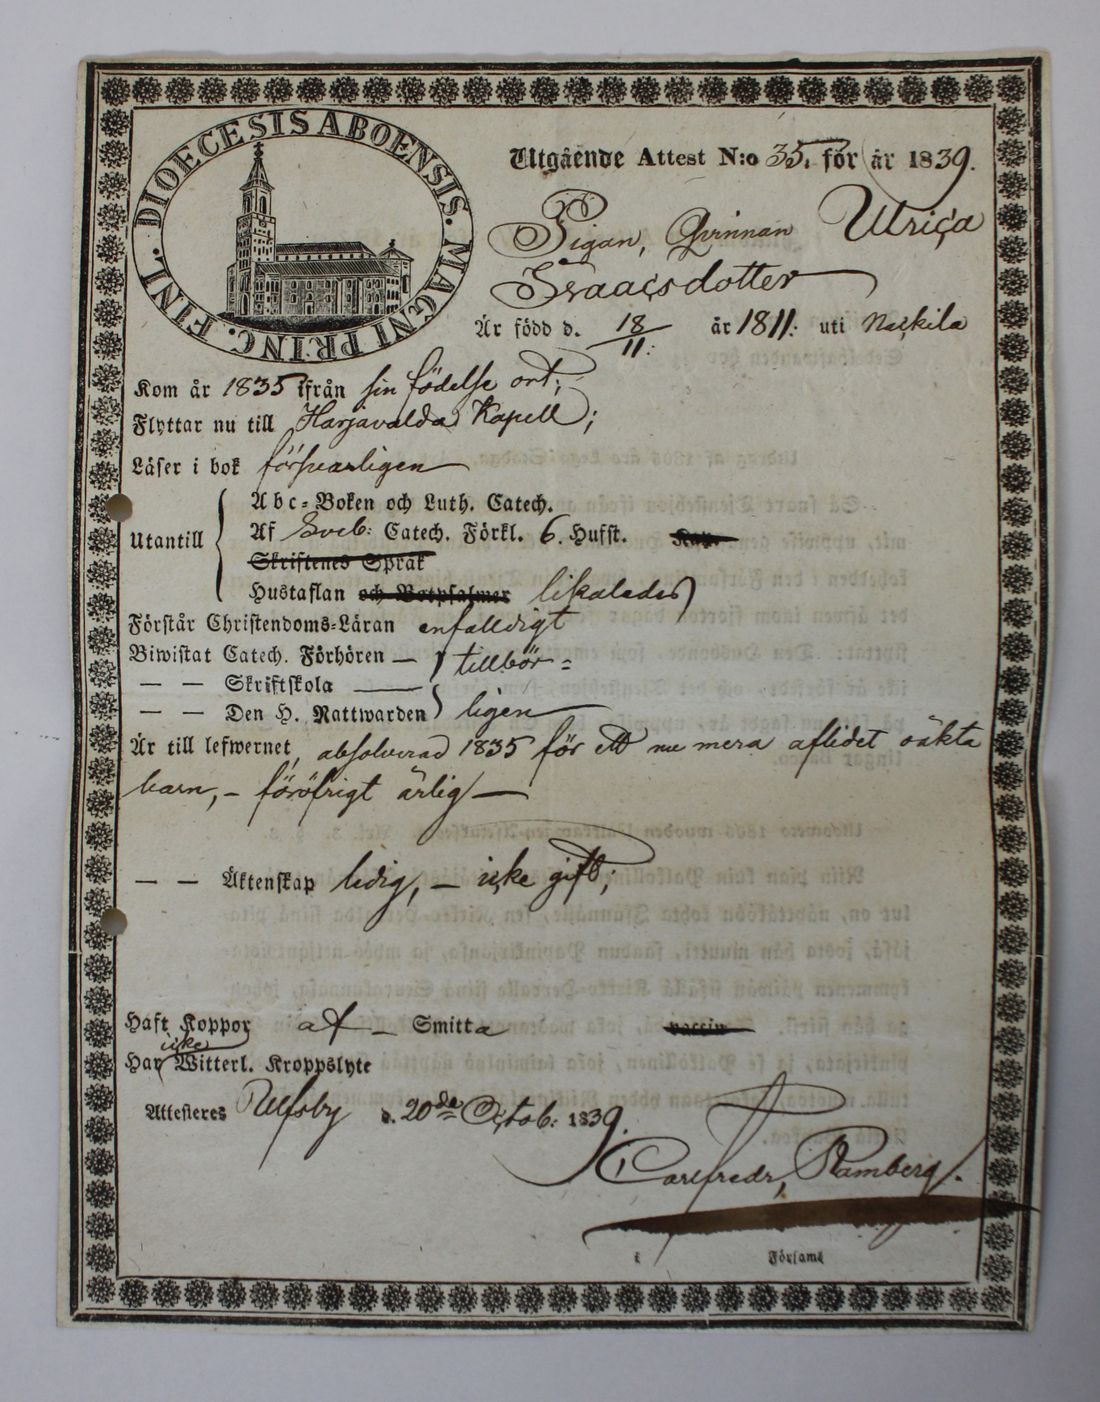 DIOECESIS ABOENSIS. MAGNI PRINC. FINL.
Utgående Attest N:o 35. för år 1839.
Pigan, Qvinnan Ulrica
Isaacsdotter
Är född d. 18/11: år 1811: uti Nackila
Kom år 1835 ifrån sin födelse ort;
Flyttar nu till Harjavalda Kapell;
Läser i bok försvarligen
Abc-Boken och Luth. Catech.
Utantill Af Sveb: Catech. Förkl. 6. Hufst.
Skriftenes Språk
Hustaflan och Botpsalmer likaledes
Förstår Christendoms-Läran enfalldigt
Biwistat Catech. Förhören — tillbör=
— — Skriftskola —
— — Den H. Nattwarden ligen
Är till lefwernet, absolverad 1835 för ett nu mera aflidet oäkta
barn, – föröfrigt ärlig —
— — Äktenskap ledig, – icke gift;
Haft Koppor af – Smitta vaccin
icke
Har Witterl. Kroppslyte
Attesteres Ulfsby d. 20de Octob: 1839.
Carl Fredr, Ramberg.
i Församl